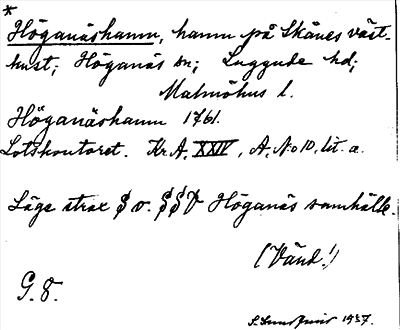 *
Höganäshamn, hamn på Skånes väst-
kust; Höganäs sn; Luggude hd;
Malmöhus l.
Höganäshamn 1761.
Lotskontoret. Kr.A. XXIV, A, No 10, lit. a.
Läge strax S o. SSV Höganäs samhälle.
(Vänd!)
G. 8.
1937.